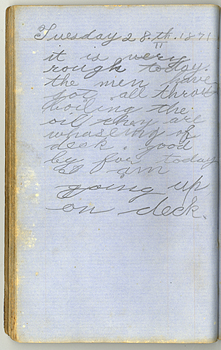 Tuesday 28th. 1871
it is very
rough today.
the men have
got all throu
boiling the
oil they are
whaseing of
desk. good
by for today
I am
going up
on deck.